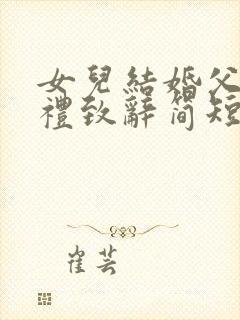 女兒結婚父
禮致辭簡短
崔芸